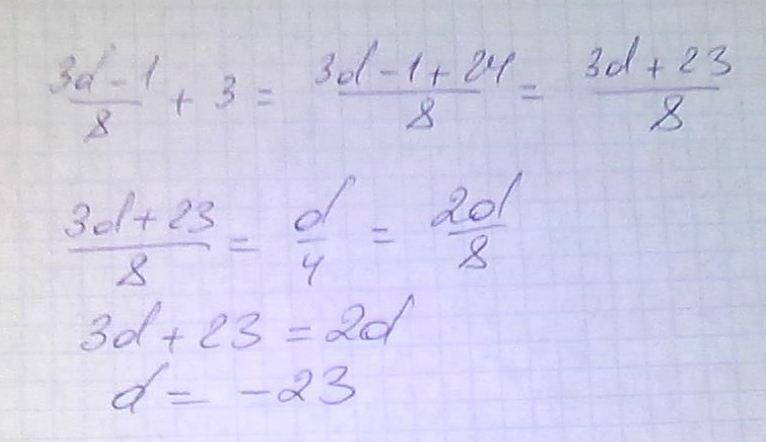 (3d-1)/8 + 3 = (3d-1+24)/8 = (3d+23)/8
(3d+23)/8 = d/4 = 2d/8
3d+23 = 2d
d = -23